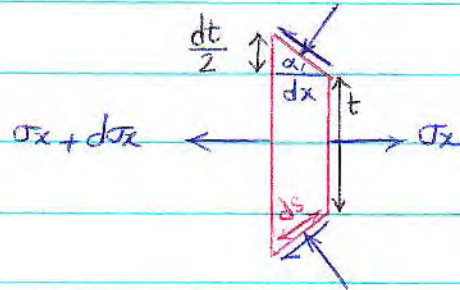 dt
2
αi
dx
t
σx + dσx
σx
ds